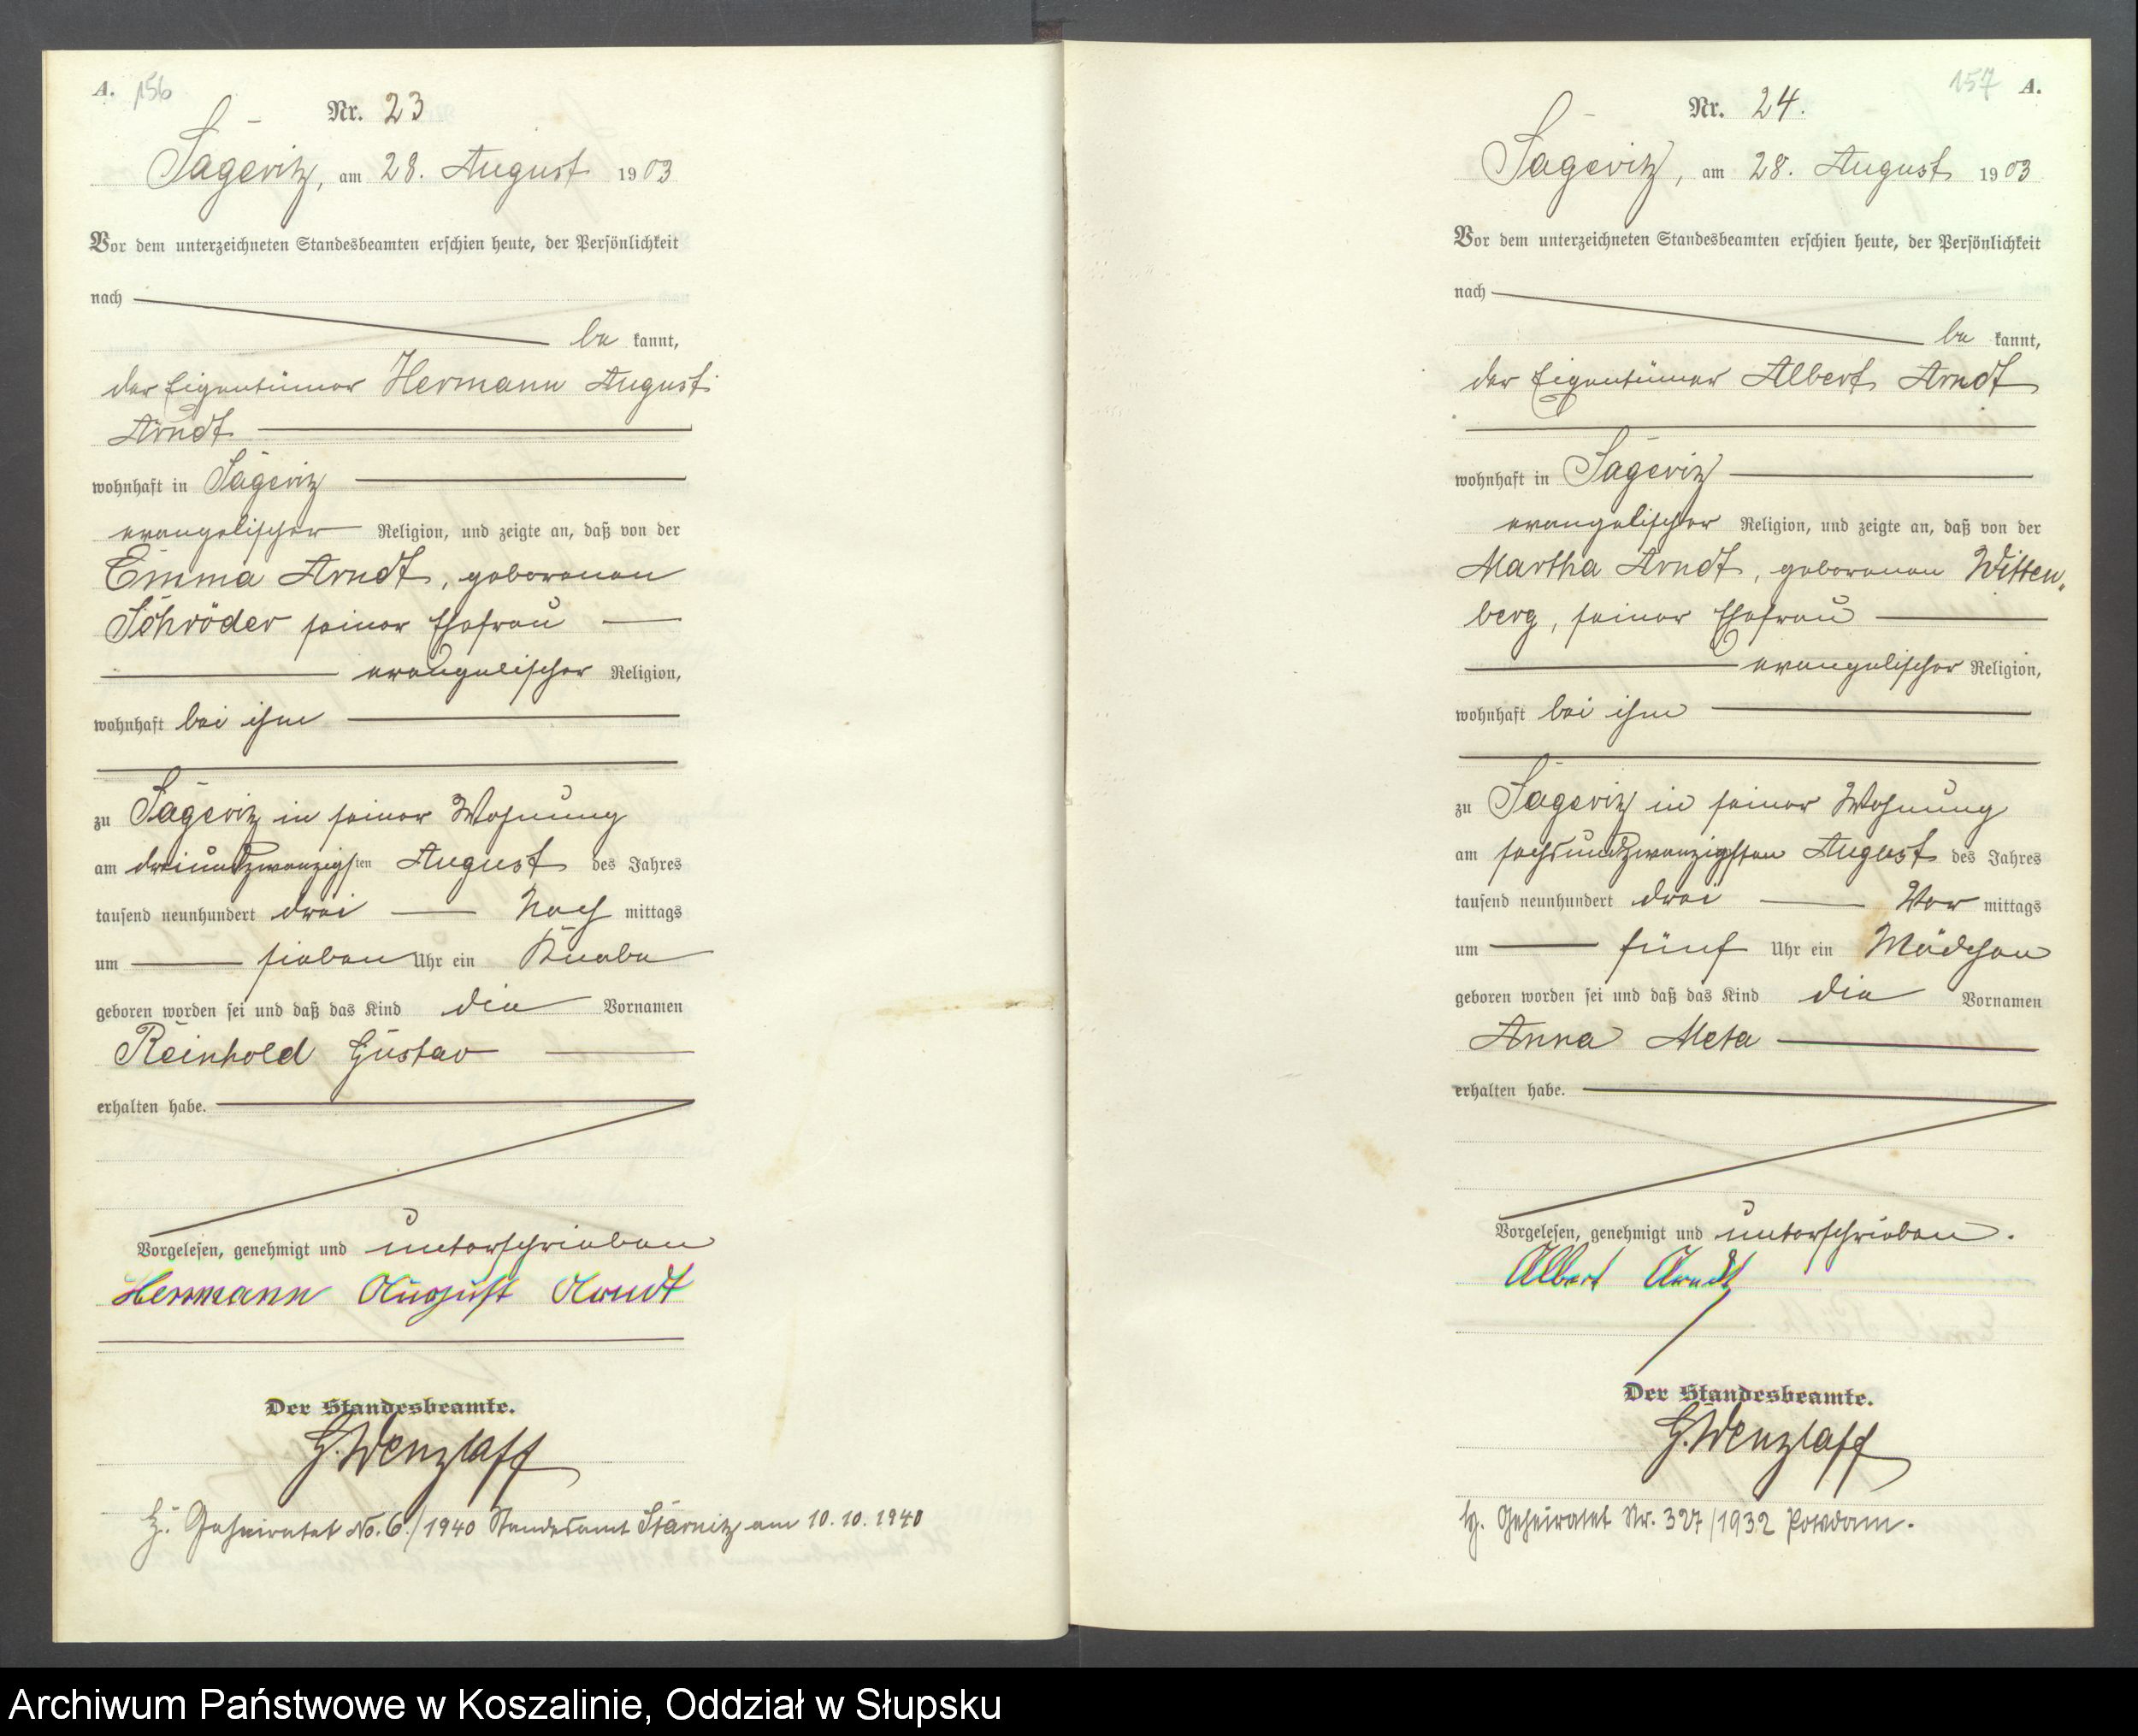 A. 156
Nr. 23
Sageritz, am 28. August 1903
Vor dem unterzeichneten Standesbeamten erschien heute, der Persönlichkeit
nach
be kannt,
der Eigentümer Hermann August
Arndt
wohnhaft in Sageritz
evangelischer Religion, und zeigte an, daß von der
Emma Arndt, geborenen
Schröder seiner Ehefrau
evangelischer Religion,
wohnhaft bei ihm
zu Sageritz in seiner Wohnung
am dreiundzwanzigsten August des Jahres
tausend neunhundert drei Nach mittags
um sieben Uhr ein Knabe
geboren worden sei und daß das Kind die Vornamen
Reinhold Gustav
erhalten habe.
Vorgelesen, genehmigt und unterschrieben
Herrmann August Arndt
Der Standesbeamte.
G. Wenzlaff
Z. Geheiratet No. 6./1940 Standesamt Starnitz am 10.10.1940
157 A.
Nr. 24.
Sageritz, am 28. August 1903
Vor dem unterzeichneten Standesbeamten erschien heute, der Persönlichkeit
nach
be kannt,
der Eigentümer Albert Arndt
wohnhaft in Sageritz
evangelischer Religion, und zeigte an, daß von der
Martha Arndt, geborenen Witten-
berg, seiner Ehefrau
evangelischer Religion,
wohnhaft bei ihm
zu Sageritz in seiner Wohnung
am sechsundzwanzigsten August des Jahres
tausend neunhundert drei Vor mittags
um fünf Uhr ein Mädchen
geboren worden sei und daß das Kind die Vornamen
Anna Meta
erhalten habe.
Vorgelesen, genehmigt und unterschrieben.
Albert Arndt
Der Standesbeamte.
G. Wenzlaff
Geheiratet Nr. 327/1932 Potsdam.
Archiwum Państwowe w Koszalinie, Oddział w Słupsku